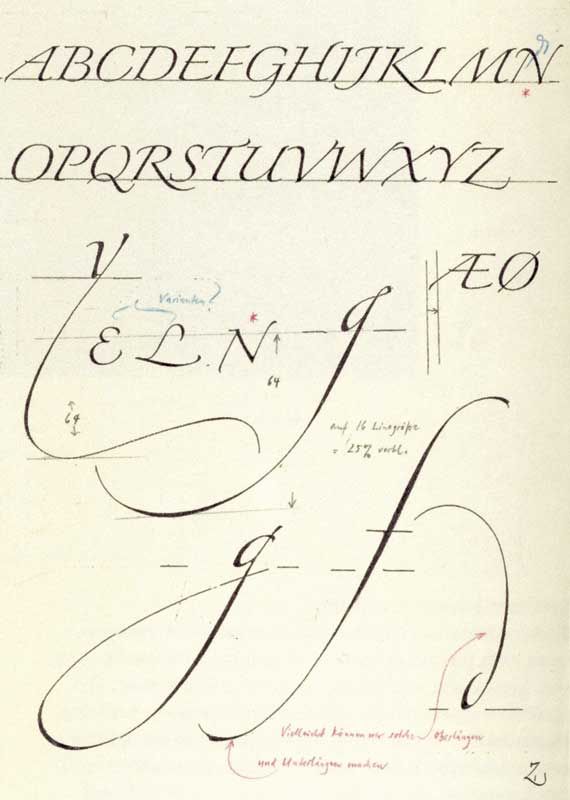 ABCDEFGHIJKLMN
*
OPQRSTUVWXYZ
y
ÆØ
Varianten?
*
ELN
g
64
64
auf 16 Liniegröße
= 25% verkl.
g
f
d
Vielleicht können wir solche Oberlängen
und Unterlängen machen
Z